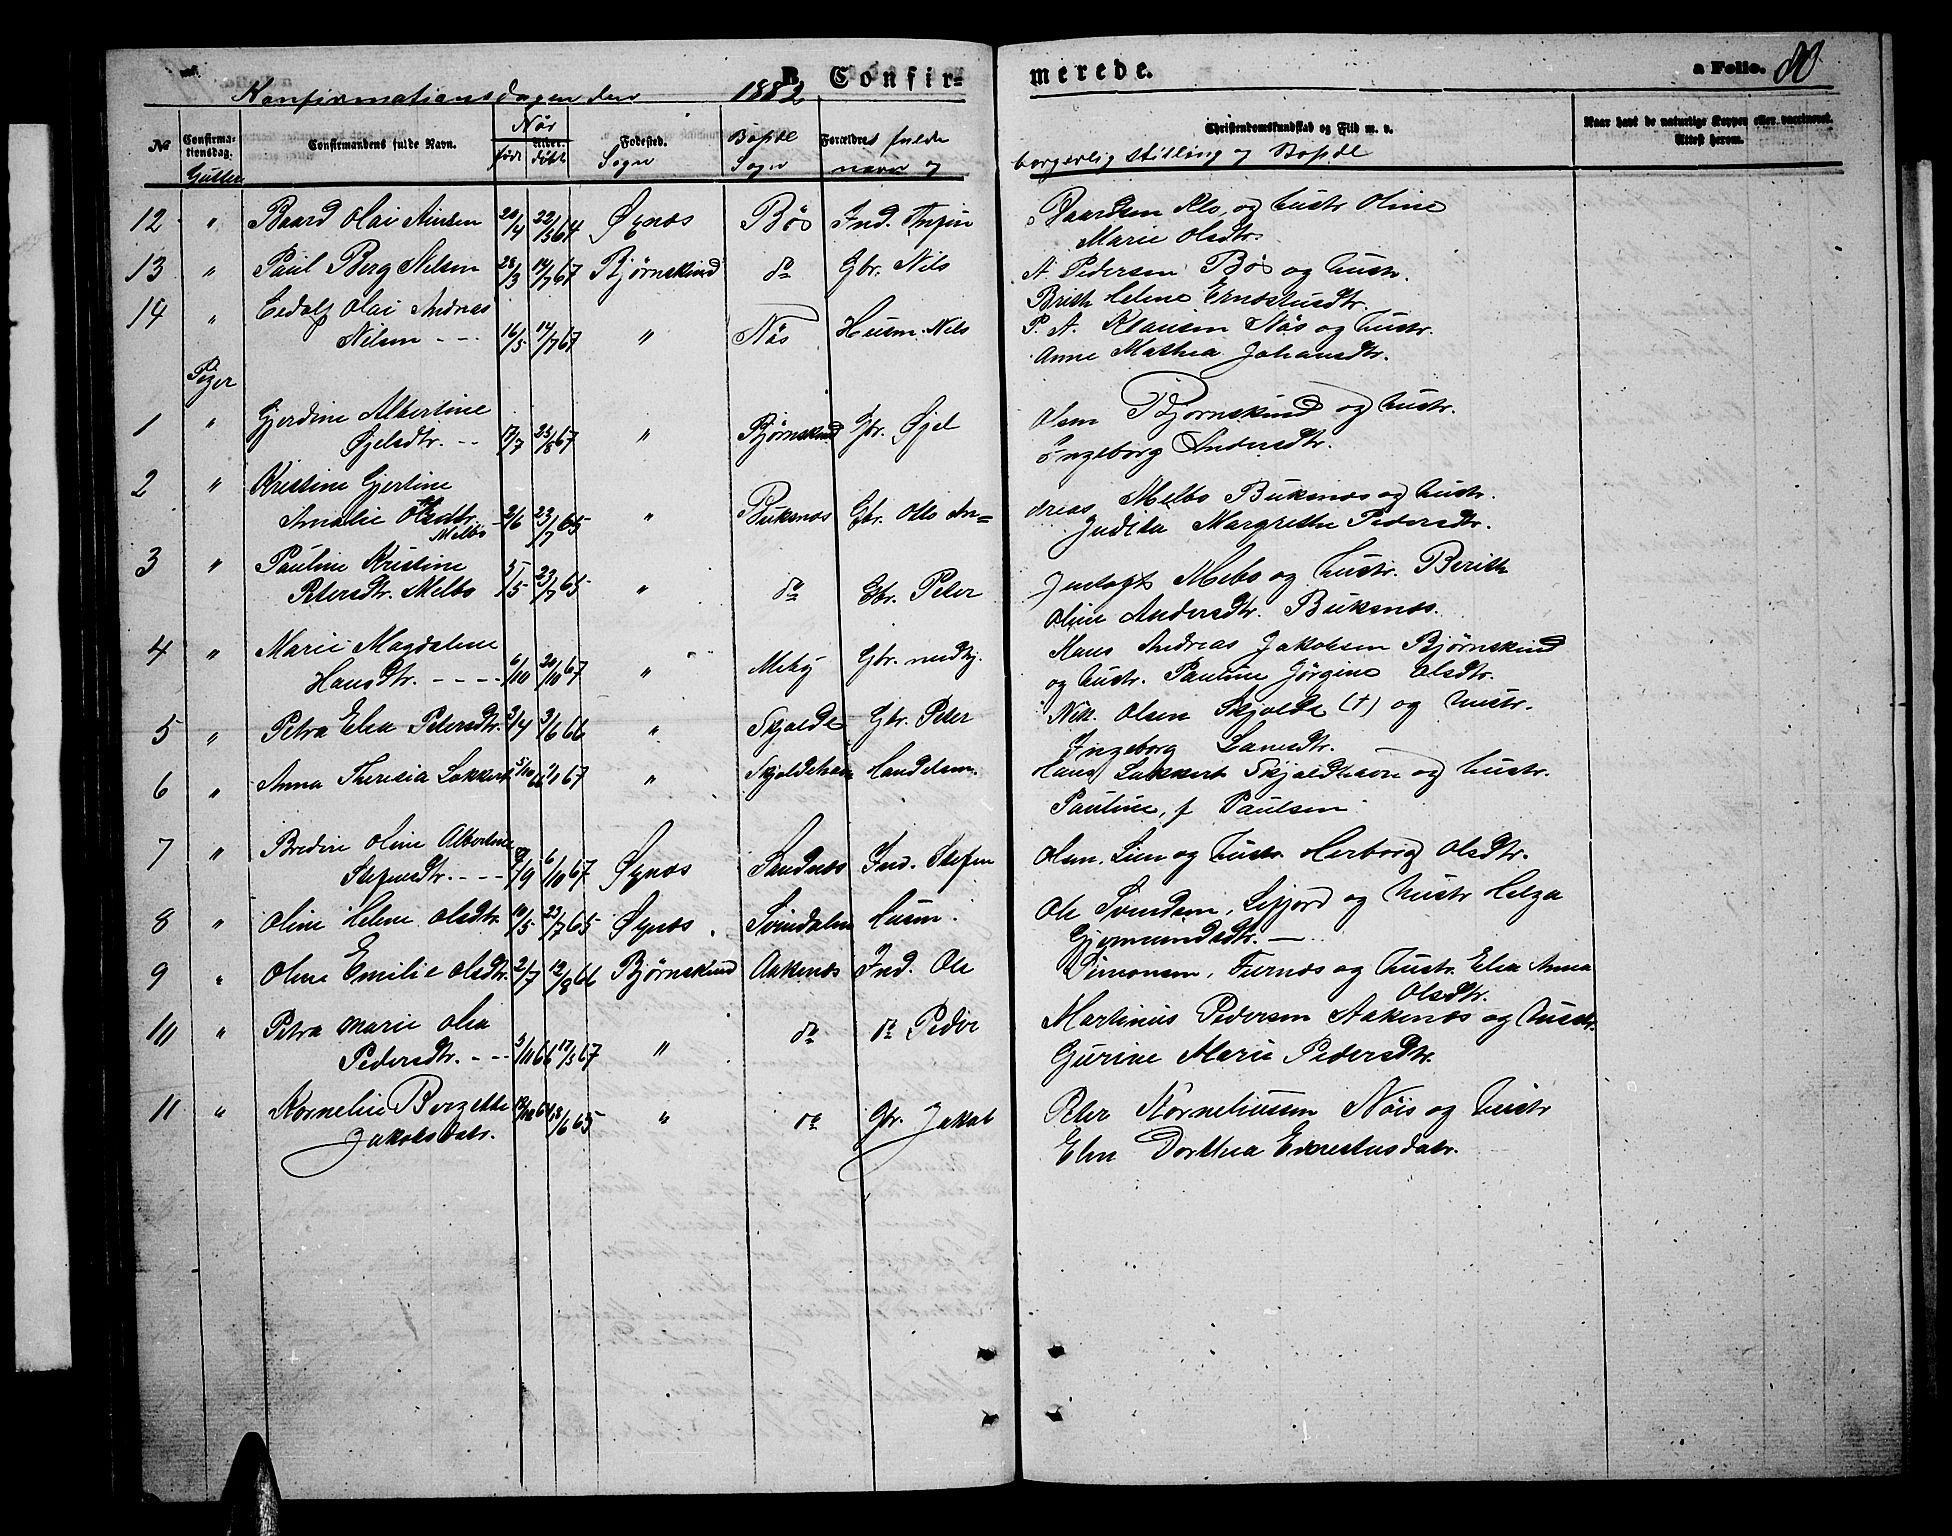 B Confir-
merede.
a Folio. 80
Konfirmationsdagen den 1882
No
Confirma-
tionsdag.
Gutter
Confirmandens fulde Navn.
Når
født
døbt
Fødested.
Sogn
Bopæl
Sogn
Forældres fulde
navn og
Christendomskundskab og Flid m. v.
borgerlig stilling og Bopæl
Naar havt de naturlige Kopper eller vaccineret.
Attest herom.
12 " Baard Olai 20/4 22/5 64 Øxnæs Bö Ind. Anfin Baardsen Klo, og hustr Oline
Marie Olsdtr.
13 " Paul Berg Nilsen 28/3 14/7 67 Bjørnskind do Gbr. Nils N. Pedersen Bö og hustr.
Berith Helene Ernestusdtr.
14 " Edolf Olai Andreas
Nilsen - - 16/5 14/7 67 " Nös Husm. Nils P. A. Klausen Nös og hustr.
Anne Mathea Johansdtr.
Piger
1 " Gjerdine Albertine
Øjelsdtr. - - 17/7 25/8 67 " Bjørnskind Gbr. Øjel Olsen Bjørnskind og hustr.
Ingeborg Andersdtr.
2 " Kristine Gjertine
Amalie Olsdtr.
Melbo 2/6 23/7 65 " Buksnæs Gbr. Ole An=
dreas Melbo Buksnæs og hustr.
Judida Margrethe Pedersdtr.
3 " Pauline Kristine
Petersdtr. Melbo 5/5 23/7 65 " do Gbr. Peter Jentoft Melbo og hustr. Berith
Oline Andersdtr. Buksnæs.
4 " Marie Magdalene
Hansdtr. - - - - 6/10 20/10 67 " Meby Gbr. nedkj. Hans Andreas Jakobsen Bjørnskind
og hustr. Pauline Jörgine Olsdtr.
5 " Petra Elea Petersdtr. 3/4 3/6 66 " Skjolde Gbr. Peter Nik. Olsen Skjolde (+) og hustr.
Ingeborg Larsdtr.
6 " Anna Theresia Lokkert 67 " Skjoldehavn Handelsm. Hans Lokkert Skjoldhavn og hustr.
Pauline, f Paulsen
7 " Bredine Oline Albertine
Stefensdtr. - - - 6/10 67 Øxnæs Sandnæs Ind. Stefen Olsen, Lien og hustr. Herborg Olsdtr.
8 " Oline Helene Olsdtr. 10/5 23/7 65 Øxnæs Svindalen Husm. Ole Svendsen, Lifjord og hustr Helga
Gjermundsdtr. —
9 " Olene Emilie Olsdtr. 2/7 12/8 66 Bjørnskind Aaknæs Ind. Ole Simonsen, Furnæs og hustr. Elea Anna
Olsdtr.
10 " Petra Marie Olea
Pedersdtr. - - 3/11 66 17/3 67 " do do Peder Martinus Pedersen Aaknæs og hustr.
Gurine Marie Pedersdtr.
11 " Kornelie Bergethe
Jakobsdatr. 64 18/6 65 " do Gbr. Jakob Peter Korneliussen Nöis og hustr
Elen Dorthea Ernestusdatr.